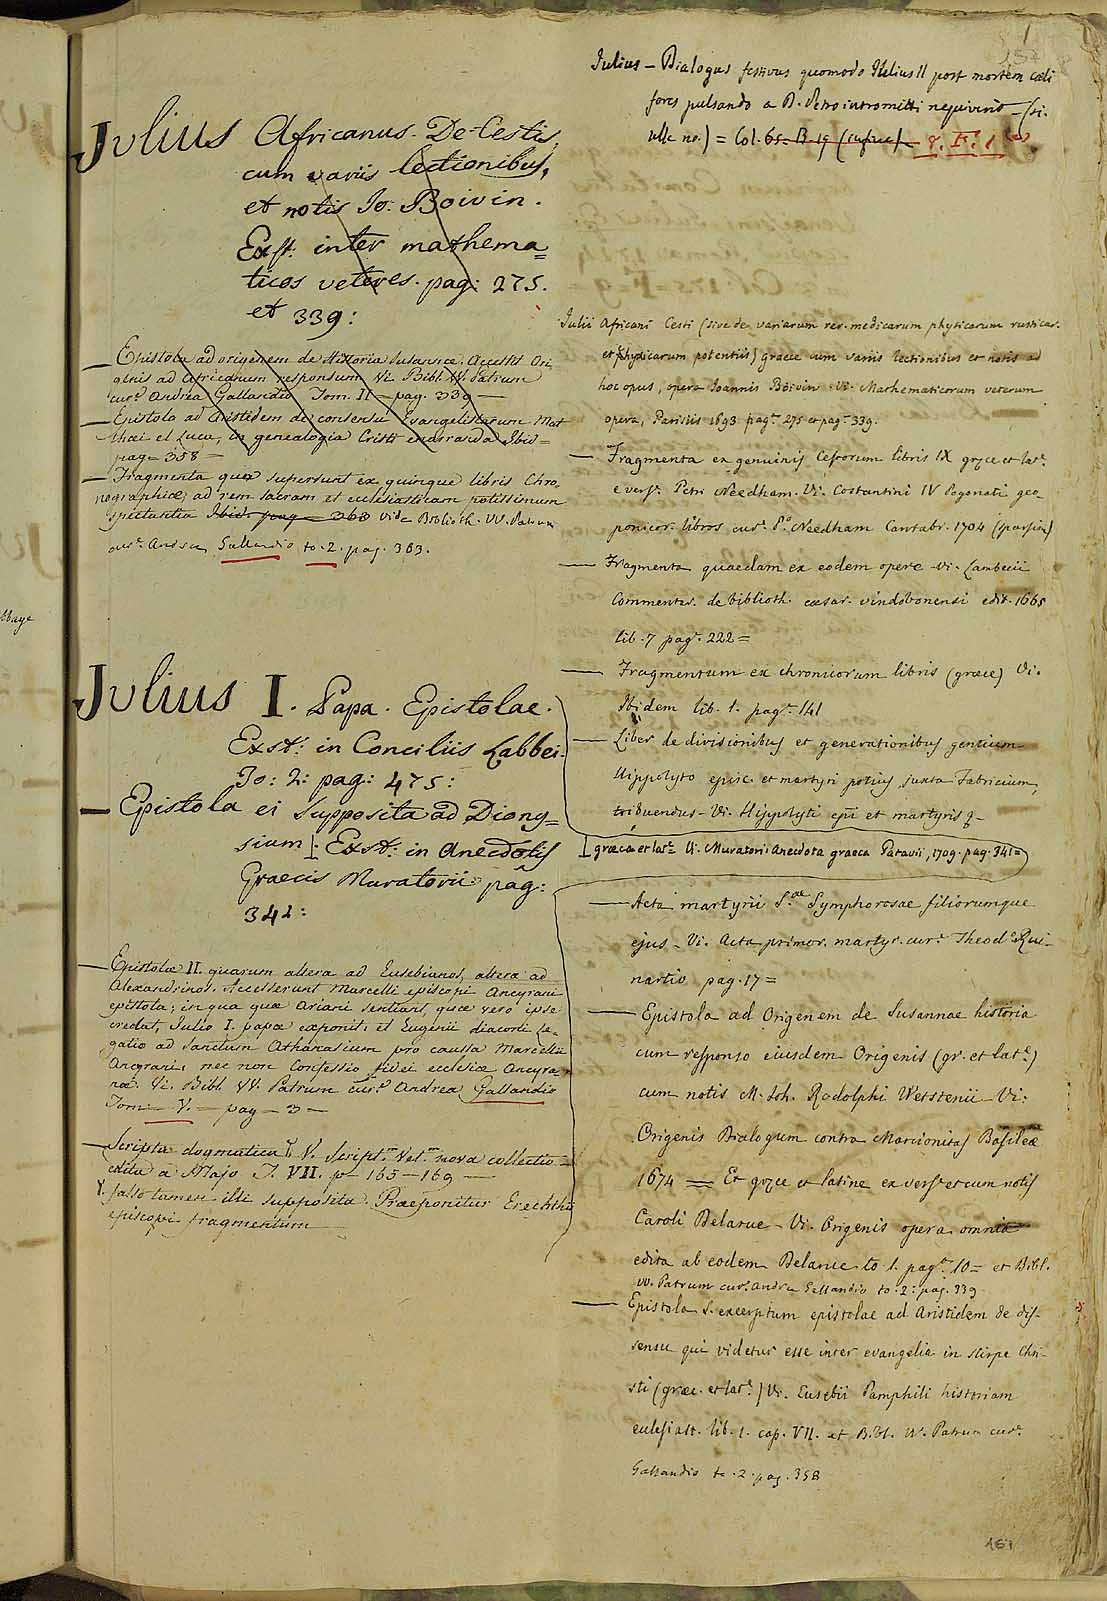 Julius Africanus. De Cestis,
cum variis lectionibus,
et notis Jo: Boivin.
Exst: inter mathema=
ticos veteres. pag: 275.
et 339:
— Epistola ad origenem de Historia Susannæ. Accessit Ori
genis ad Africanum responsum Vi Bibl. VV. Patrum
cur.e Andrea Gallandio Tom. II — pag. 339 —
— Epistola ad Aristidem de consensu Evangelistarum Mat
thæi et Lucæ, in genealogia Cristi enarranda Ibid=
pag= 358 =
— Fragmenta quæ supersunt ex quinque libris Chro
nographiæ; ad rem sacram et ecclesiasticam potissimum
spectantia Ibid. pag — 363 vide Biblioth. VV. Patrum
cur.e Andrea Gallandio to. 2. pag. 363.
Julius I. Papa. Epistolae.
Exst: in Conciliis Labbei.
To: 2: pag: 475:
— Epistola ei supposita ad Diony=
sium. Exst: in Anecdotis
Graecis Muratorii pag:
341:
— Epistolæ II. quarum altera ad Eusebianos, altera ad
Alexandrinos. Accesserunt Marcelli episcopi Ancyrani
epistola; in qua quæ Ariani sentiant, quæ vero ipse
credat, Julio I. papæ exponit; et Eugenii diaconi Le=
gatio ad sanctum Athanasium pro caussa Marcelli
Ancyrani, nec non Confessio fidei ecclesiæ Ancyra=
næ. Vi. Bibl. VV. Patrum cur.e Andrea Gallandio
Tom — V. — pag — 3 —
— Scripta dogmatica V. Script.m Vet.m nova collectio=
edita a Majo T. VII. p— 165—169 —
falso tamen illi supposita. Præponitur Erechthii
episcopi fragmentum —
Julius — Dialogus festivus quomodo Julius II post mortem cœli
fores pulsando a D. Petro intromitti nequiverit — (si.
ulle no.) = Col. 65. B. 19 (infine) 8. F. 1
Julii Africani Cesti (sive de variarum rer. medicarum physicarum rusticar.
et physicarum potentiis) græce cum variis lectionibus et notis ad
hoc opus, opera Joannis Boivin. Vi. Mathematicorum veterum
opera, Parisiis 1693 pag.e 275 et pag.e 339.
— Fragmenta ex genuinis Cestorum libris IX græce et lat.e
e vers.e Petri Needham. Vi. Costantini IV Pogonati geo
ponicor. libros cur.e P.o Needham Cantabr. 1704 (passim)
— Fragmenta quaedam ex eodem opere vi. Lambecii
Commentar. de biblioth. cæsar. vindobonensi edit. 1665
lib. 7 pag.e 222 =
— Fragmentum ex chronicorum libris (græce) Vi.
Ibidem lib. 1. pag.e 141
— Liber de divisionibus et generationibus gentium
Hippolyto episc. et martyri potius, juxta Fabricium,
tribuendus. Vi. Hippolyti epi et martyris
græce et lat.e Vi. Muratori Anecdota graeca Patavii, 1709. pag. 341=
— Acta martyrii S.ae Symphorosae filiorumque
ejus — Vi. Acta primor. martyr. cur.e Theod.o Rui-
nartio pag. 17 =
— Epistola ad Origenem de Susannae historia
cum responso eiusdem Origenis (gr. et lat.e)
cum notis M. Joh. Rodolphi Wetstenii Vi:
Origenis Dialogum contra Marcionitas Basileæ
1674 = Et græce et latine ex vers.e et cum notis
Caroli Delarue — Vi. Origenis opera omnia
edita ab eodem Delarue to. 1. pag.e 10 = et Bibl.
VV. Patrum cur. Andrea Gallandio to. 2: pag. 339
— Epistola S. excerptum epistolae ad Aristidem de dis-
sensu qui videtur esse inter evangelia in stirpe Chri-
sti (græc. et lat.e) Vi. Eusebii Pamphili historiam
eclesiast. lib. 1. cap. VII. et Bibl. VV. Patrum cur.e
Gallandio to. 2. pag. 358
161